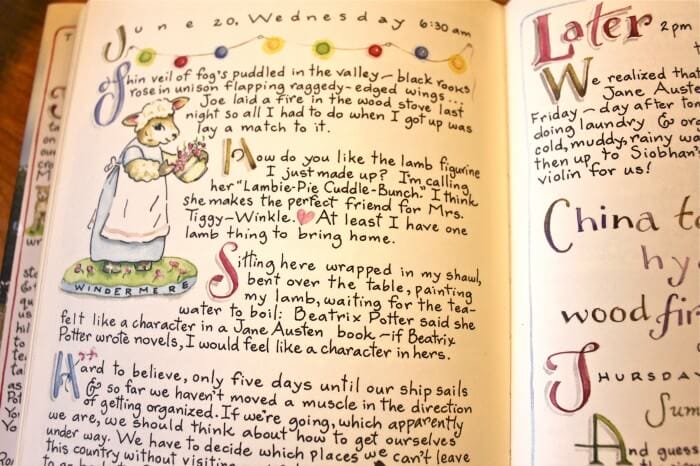 June 20, Wednesday 6:30 am
Thin veil of fog's puddled in the valley — black rooks
rose in unison flapping raggedy-edged wings...
Joe laid a fire in the wood stove last
night so all I had to do when I got up was
lay a match to it.
How do you like the lamb figurine
I just made up? I'm calling
her "Lambie-Pie Cuddle-Bunch." I think
she makes the perfect friend for Mrs.
Tiggy-Winkle. ❤ At least I have one
lamb thing to bring home.
WINDERMERE
Sitting here wrapped in my shawl,
bent over the table, painting
my lamb, waiting for the tea-
water to boil: Beatrix Potter said she
felt like a character in a Jane Austen book — if Beatrix
Potter wrote novels, I would feel like a character in hers.
Hard to believe, only five days until our ship sails
& so far we haven't moved a muscle in the direction
of getting organized. If we're going, which apparently
we are, we should think about how to get ourselves
under way. We have to decide which places we can't leave
this country without visiting
Later 2 pm
We realized that
Jane Auste
Friday — day after to
doing laundry & or
cold, muddy, rainy wa
then up to Siobhan's
violin for us!
China t
hy
wood fir
THURSDA
Sum
And gues